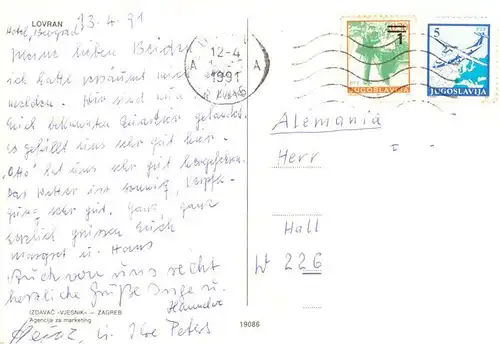 LOVRAN
Hotel, Beograd 13.4.91
Meine lieben Beiden
ich hatte versäumt mich
melden. Wir sind
Euch bekannten Quartier gelandet.
Es gefällt uns sehr gut hier.
"Otto" hat uns sehr gut hergefahren.
Das Wetter ist sonnig, Verpfle-
gung sehr gut. Ganz, ganz
herzlich grüssen Euch
Margret u. Hans
Auch von uns recht
herzliche Grüße Inge u.
Hannelore
Heinz u. Ilse Peters
IZDAVAČ «VJESNIK» — ZAGREB
Agencija za marketing
19086
12-4
A A
1991
1
JUGOSLAVIJA
5
JUGOSLAVIJA
Alemania
Herr
I
Hall
W 226